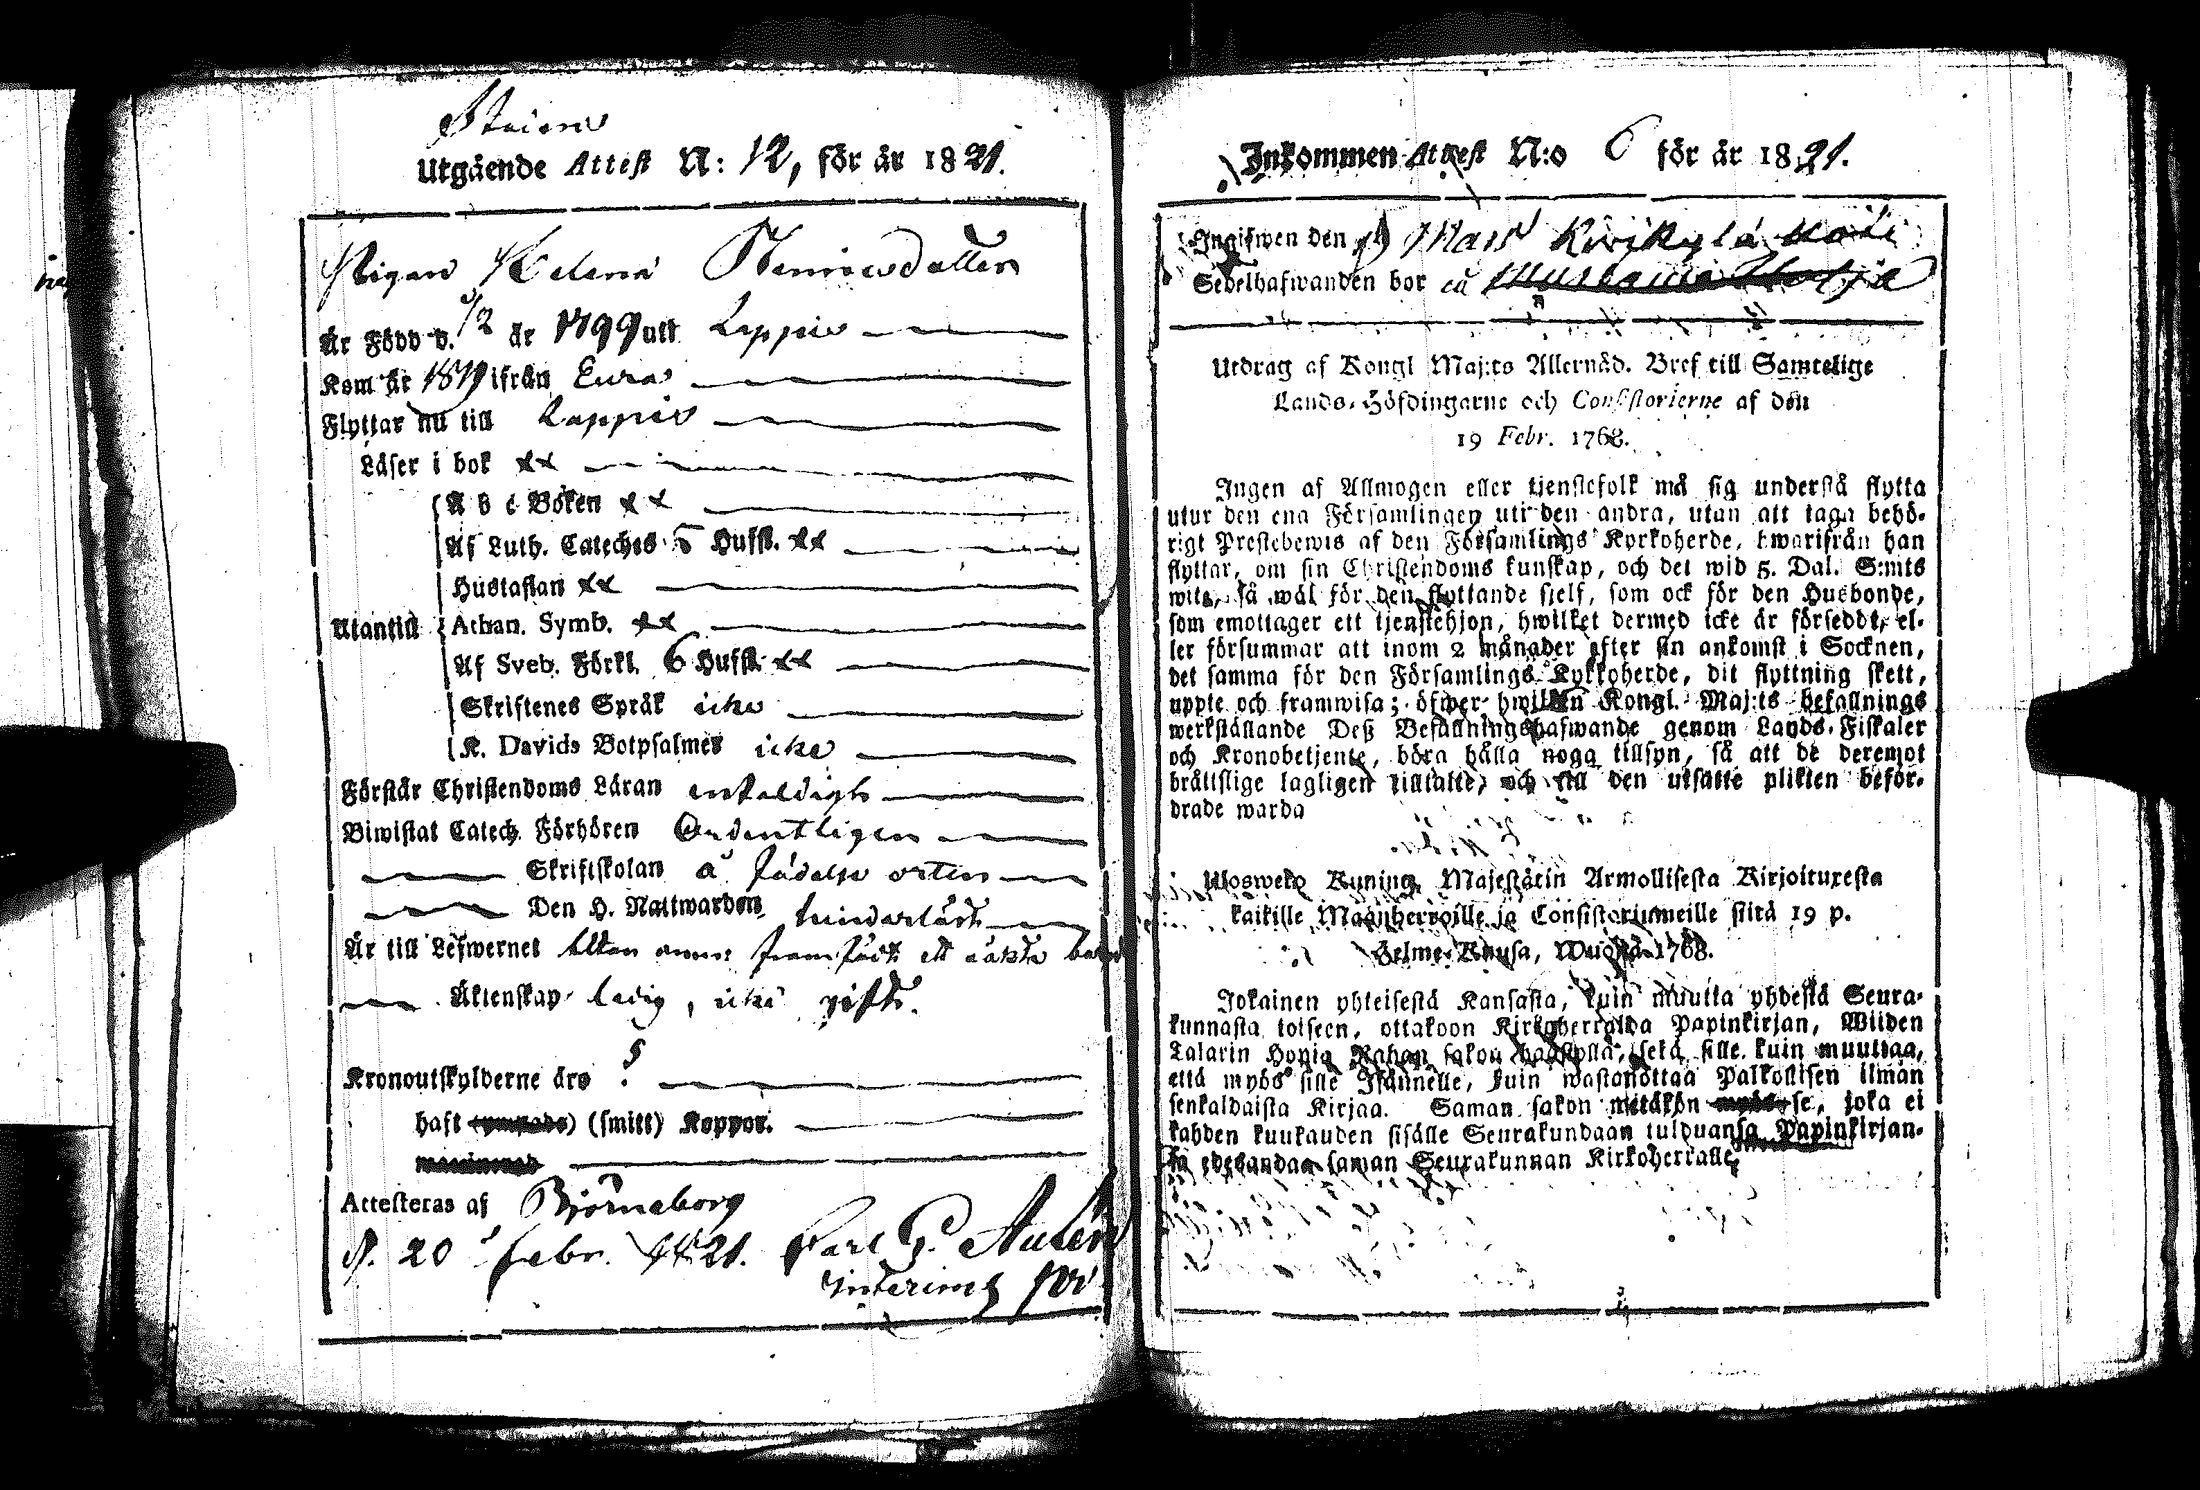 Utgående Attest N: 12, för år 1821.
Pigan Helena Henricsdotter
Är Född d. 1/2 år 1799 uti Lappis
Kom år 1819 ifrån Eura
Flyttar nu till Lappis
Läser i bok xx
A b c Boken xx
Af Luth. Cateches 5 Hufst. xx
Hustaflan xx
Utantill Athan. Symb. xx
Af Sveb. Förkl. 6 Hufst. xx
Skriftenes Språk icke
K. Davids Botpsalmer icke
Förstår Christendoms Läran enfaldigt
Biwistat Catech. Förhören Ordentligen
Skriftskolan å födelse orten
Den H. Nattwarden
Är till Lefwernet framfödt ett oäkta barn
Äktenskap ledig, icke gift.
Kronoutskylderne äro
haft (ympade) (smitt) Koppor.
Attesteras af Björneborg
d. 20 Febr. 1821. Carl G. Aulén
Interims
Inkommen Attest N:o 6 för år 1821.
Ingifwen den 19 Mars Kivikylä
Sedelhafwanden bor
Utdrag af Kongl Maj:ts Allernåd. Bref till Samtelige
Lands-Höfdingarne och Consistorierne af den
19 Febr. 1768.
Ingen af Allmogen eller tjenstefolk må sig understå flytta
utur den ena Församlingen uti den andra, utan att taga behö-
rigt Prestebewis af den Församlings Kyrkoherde, hwarifrån han
flyttar, om sin Christendoms kunskap, och det wid 5. Dal. S:mts
wite, så wäl för den flyttande sjelf, som ock för den Husbonde,
som emottager ett tjenstehjon, hwilket dermed icke är försedde, el-
ler försummar att inom 2 månader efter sin ankomst i Socknen,
det samma för den Församlings Kyrkoherde, dit flyttning skett,
uppte och framwisa; öfwer hwilken Kongl. Maj:ts befallnings
werkställande Deß Befallningshafwande genom Lands-Fiskaler
och Kronobetjente, böra hålla noga tillsyn, så att de deremot
bråttslige lagligen tilltalte, och till den utsatte plikten beför-
drade warda
Uloswedo Kuning. Majestätin Armollisesta Kirjoituxesta
kaikille Maanherroille ja Consistoriumeille siitä 19 p.
Helme-Kuusa, Wuonna 1768.
Jokainen yhteisestä Kansasta, kuin muutta yhdestä Seura-
kunnasta toiseen, ottakoon Kirkoherralda Papinkirjan, Wiiden
Talarin Hopia Rahan sakon haastolla, sekä sille kuin muuttaa,
että myös sille Isännelle, kuin wastanottaa Palkollisen ilman
senkaldaista Kirjaa. Saman sakon wetäkön myös se, joka ei
kahden kuukauden sisälle Seurakundaan tulduansa Papinkirjan-
sa edesandaa saman Seurakunnan Kirkoherralle